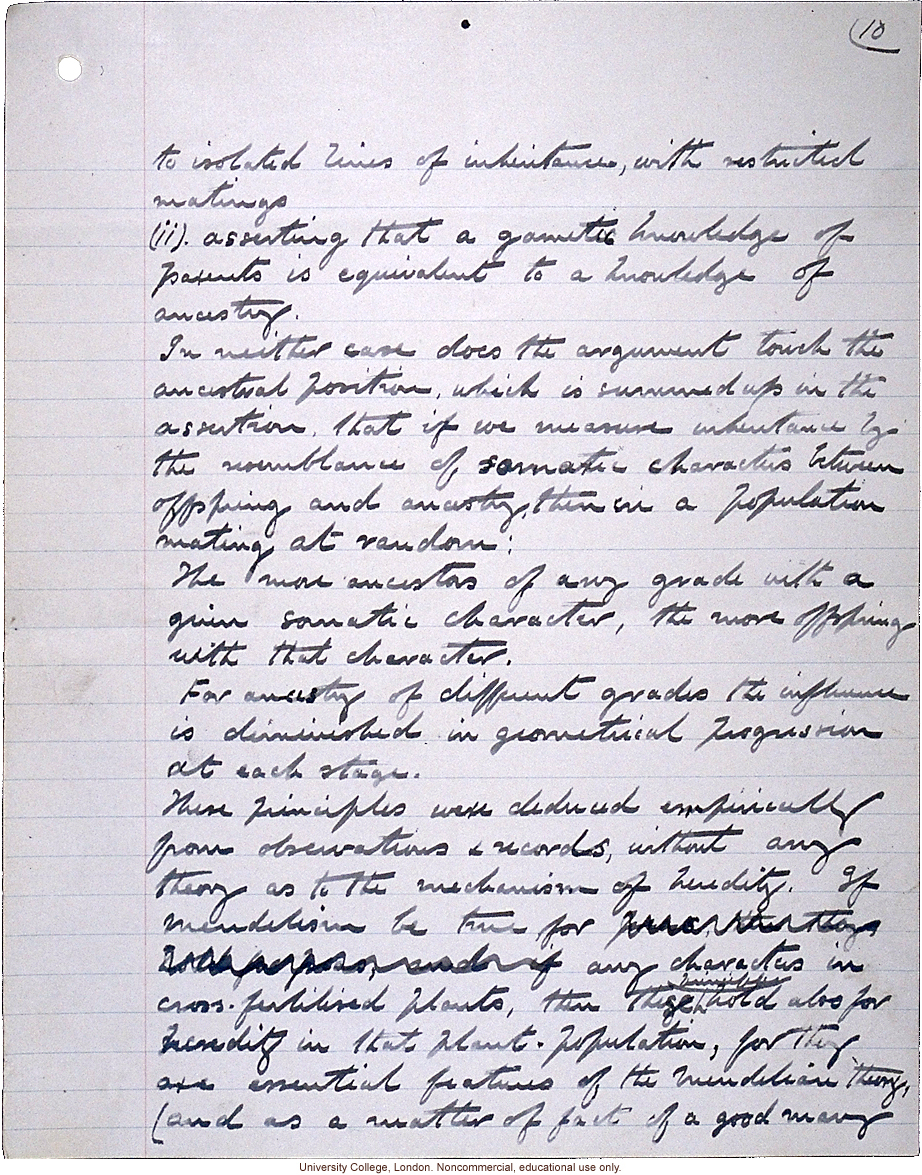 10
to isolated lines of inheritance, with restricted
matings
(ii). asserting that a gametic knowledge of
parents is equivalent to a knowledge of
ancestry.
In neither case does the argument touch the
ancestral position, which is summed up in the
assertion, that if we measure inheritance by
the resemblance of somatic characters between
offspring and ancestry, then in a population
mating at random:
The more ancestors of any grade with a
given somatic character, the more offspring
with that character.
For ancestry of different grades the influence
is diminished in geometrical progression
at each stage.
These principles were deduced empirically
from observations & records, without any
theory as to the mechanism of heredity. If
mendelism be true for
any characters in
principles
cross-fertilised plants, then these hold also for
heredity in that plant-population, for they
are essential features of the Mendelian theory,
(and as a matter of fact of a good many
University College, London. Noncommercial, educational use only.